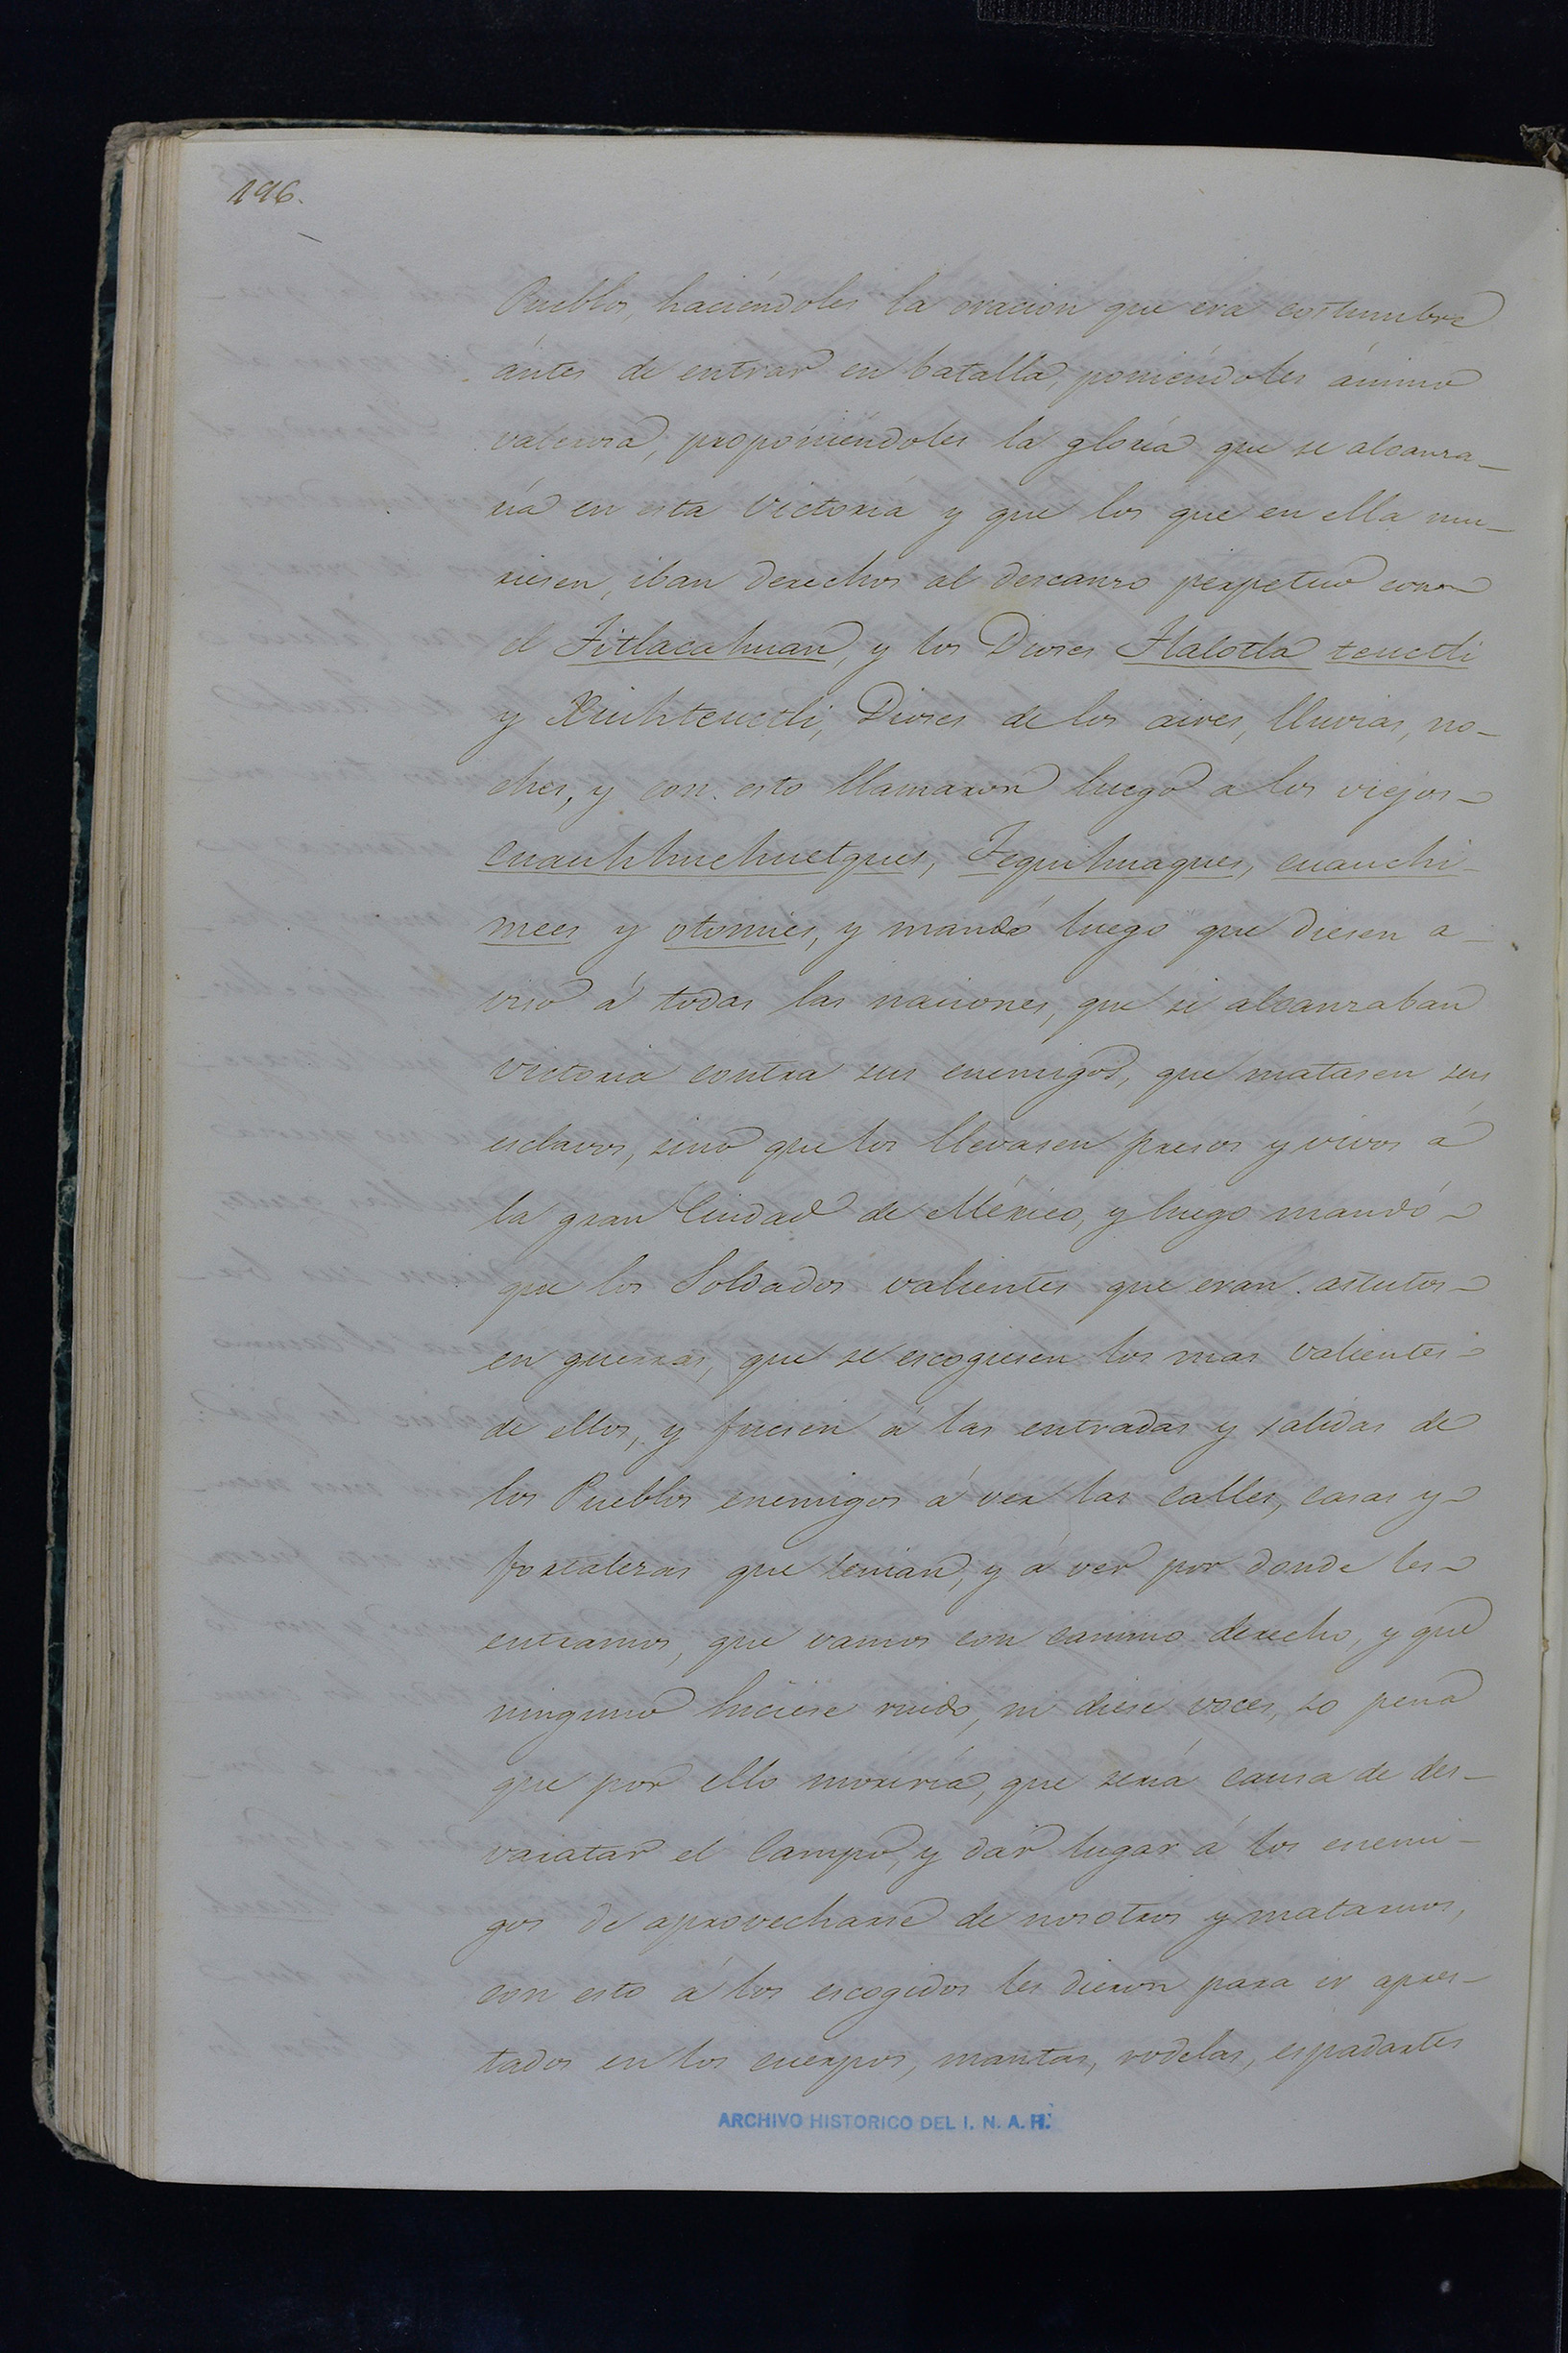 196.
Pueblos, haciéndoles la oracion que era costumbre
ántes de entrar en batalla, poniéndoles ánimo
valerosa, proponiéndoles la gloria que se alcanza-
ria en esta Victoria y que los que en ella mu-
riesen, iban derechos al descanzo perpetuo con
el Titlacahuan, y los Dioses Tlalotla teuctli
y Xiuhteuctli, Dioses de los aires, lluvias, no-
ches, y con esto llamaron luego a los viejos
cuauhhuehuetques, Tequihuaques, cuauchi-
mees y otomies, y mandó luego que diesen a-
viso á todas las naciones, que si alcanzaban
victoria contra sus enemigos, que matasen sus
esclavos, sino que los llevasen presos y vivos á
la gran Ciudad de México, y luego mandó
que los Soldados valientes que eran astutos
en guerras, que se escogiesen los mas valientes
de ellos, y fuesen á las entradas y salidas de
los Pueblos enemigos á ver las calles, casas y
fortalezas que tenian, y á ver por donde les
entramos, que vamos con camino derecho, y que
ninguno hiciese ruido, ni diese voces, so pena
que por ello moriria, que seria causa de des-
varatar el Campo, y dar lugar á los enemi-
gos de aprovecharse de nosotros y matarnos,
con esto á los escogidos les dieron para ir apres-
tados en los cuerpos, mantas, rodelas, espadartes
ARCHIVO HISTORICO DEL I. N. A. H.